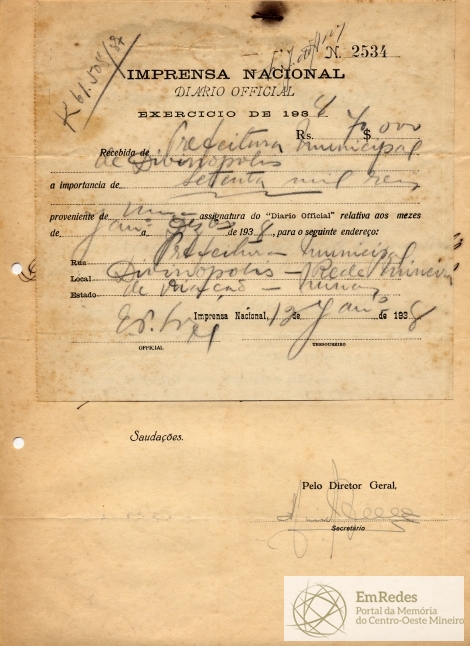 K 61.508/37
N. 2534
IMPRENSA NACIONAL
DIARIO OFFICIAL
EXERCICIO DE 1938
Rs. 70$000
Recebida de Prefeitura Municipal
de Divinopolis
a importancia de setenta mil reis
proveniente de uma assignatura do "Diario Official" relativa aos mezes
de Jan. a Dezº de 1938, para o seguinte endereço:
Rua Prefeitura Municipal
Local Divinopolis – Rede Mineira
Estado de Viação – Minas
Imprensa Nacional, 12 de Janº de 1938
OFFICIAL
THESOUREIRO
Saudações.
Pelo Diretor Geral,
Secretário
EmRedes
Portal da Memória
do Centro-Oeste Mineiro